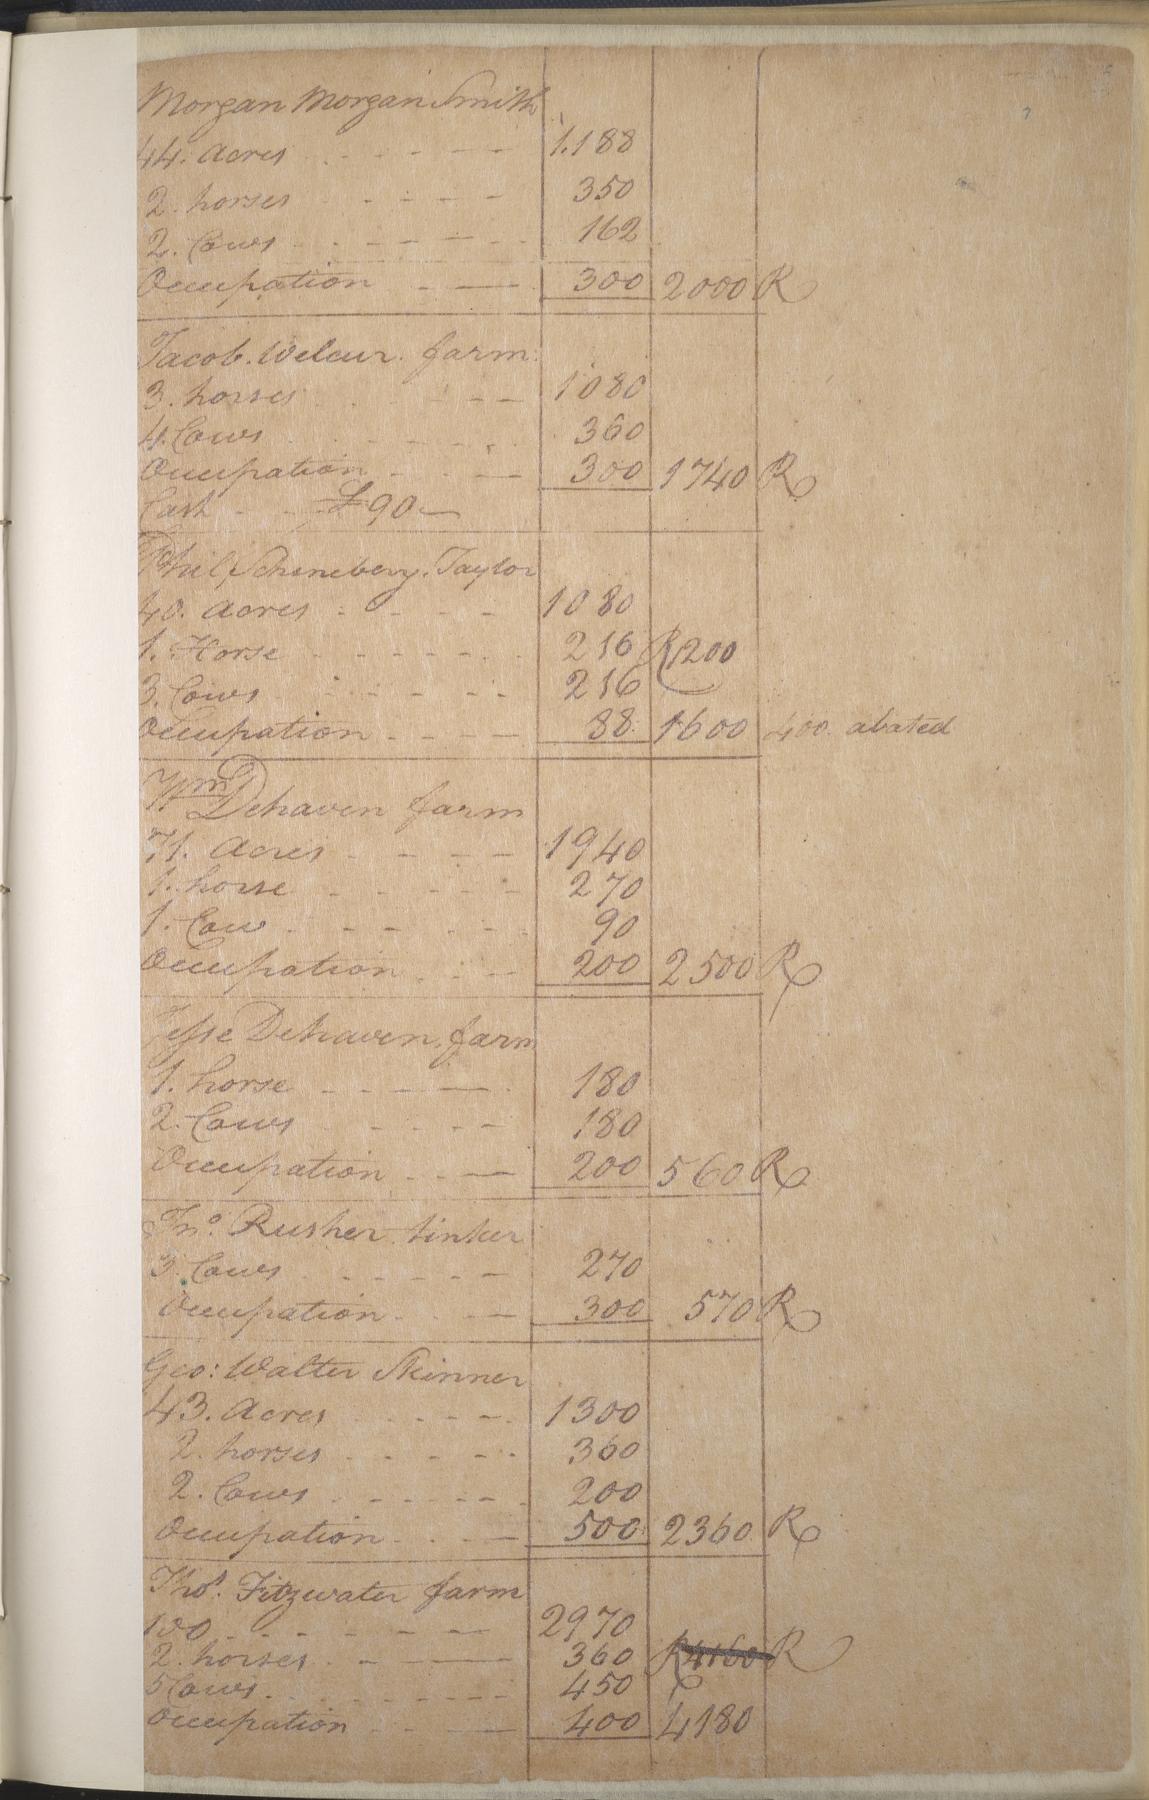 Morgan Morgan Smith
44. Acres 1.188
2. horses 350
2. Cows 162
Occupation 300 2000 R
Jacob. Welcur. farm.
3. horses 1080
4. Cows 360
Occupation 300 1740 R
Cash £90
Phil Scheneberg. Taylor
40. Acres 1080
1. Horse 216 R 1200
3. Cows 216
Occupation 88 1600 400 abated
Wm Dehaven farm
71. Acres 1940
1. horse 270
1. Cow 90
Occupation 200 2500 R
Jesse Dehaven. farm
1. horse 180
2. Cows 180
Occupation 200 560 R
Jno. Rusher. tinker
3. Cows 270
Occupation 300 570 R
Geo: Walter Skinner
43. Acres 1300
2. horses 360
2. Cows 200
Occupation 500 2360 R
Thos. Fitzwater farm
100 2970
2. horses 360 R 4160 R
5 Cows 450
Occupation 400 4180